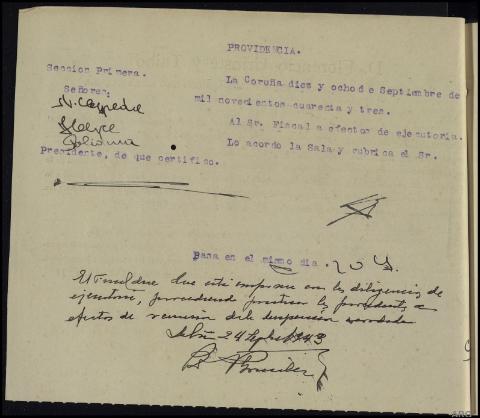 PROVIDENCIA.
Seccion Primera.
Señores:
La Coruña diez y ochode Septiembre de
mil novecientos cuarenta y tres.
Al Sr. Fiscal a efectos de ejecutoria.
Lo acordo la Sala y rubrica el Sr.
Presidente, de que certifico.
Pasa en el mismo dia.
El Fiscal dice que está conforme con las diligencias de
ejecutoria, procediendo practicar las procedentes a
efectos de remisión de la suspensión acordada
24 Septbre 1943